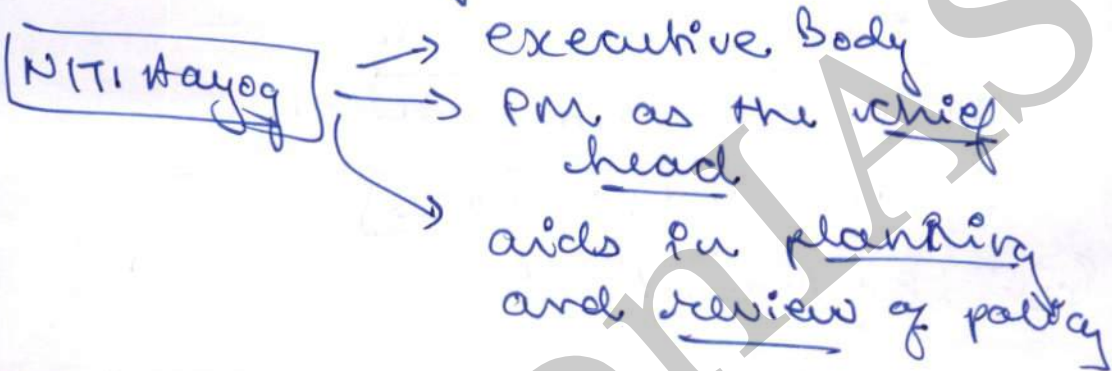 NITI Aayog
executive Body
PM as the chief
head
aids in planning
and review of policy
nIAS